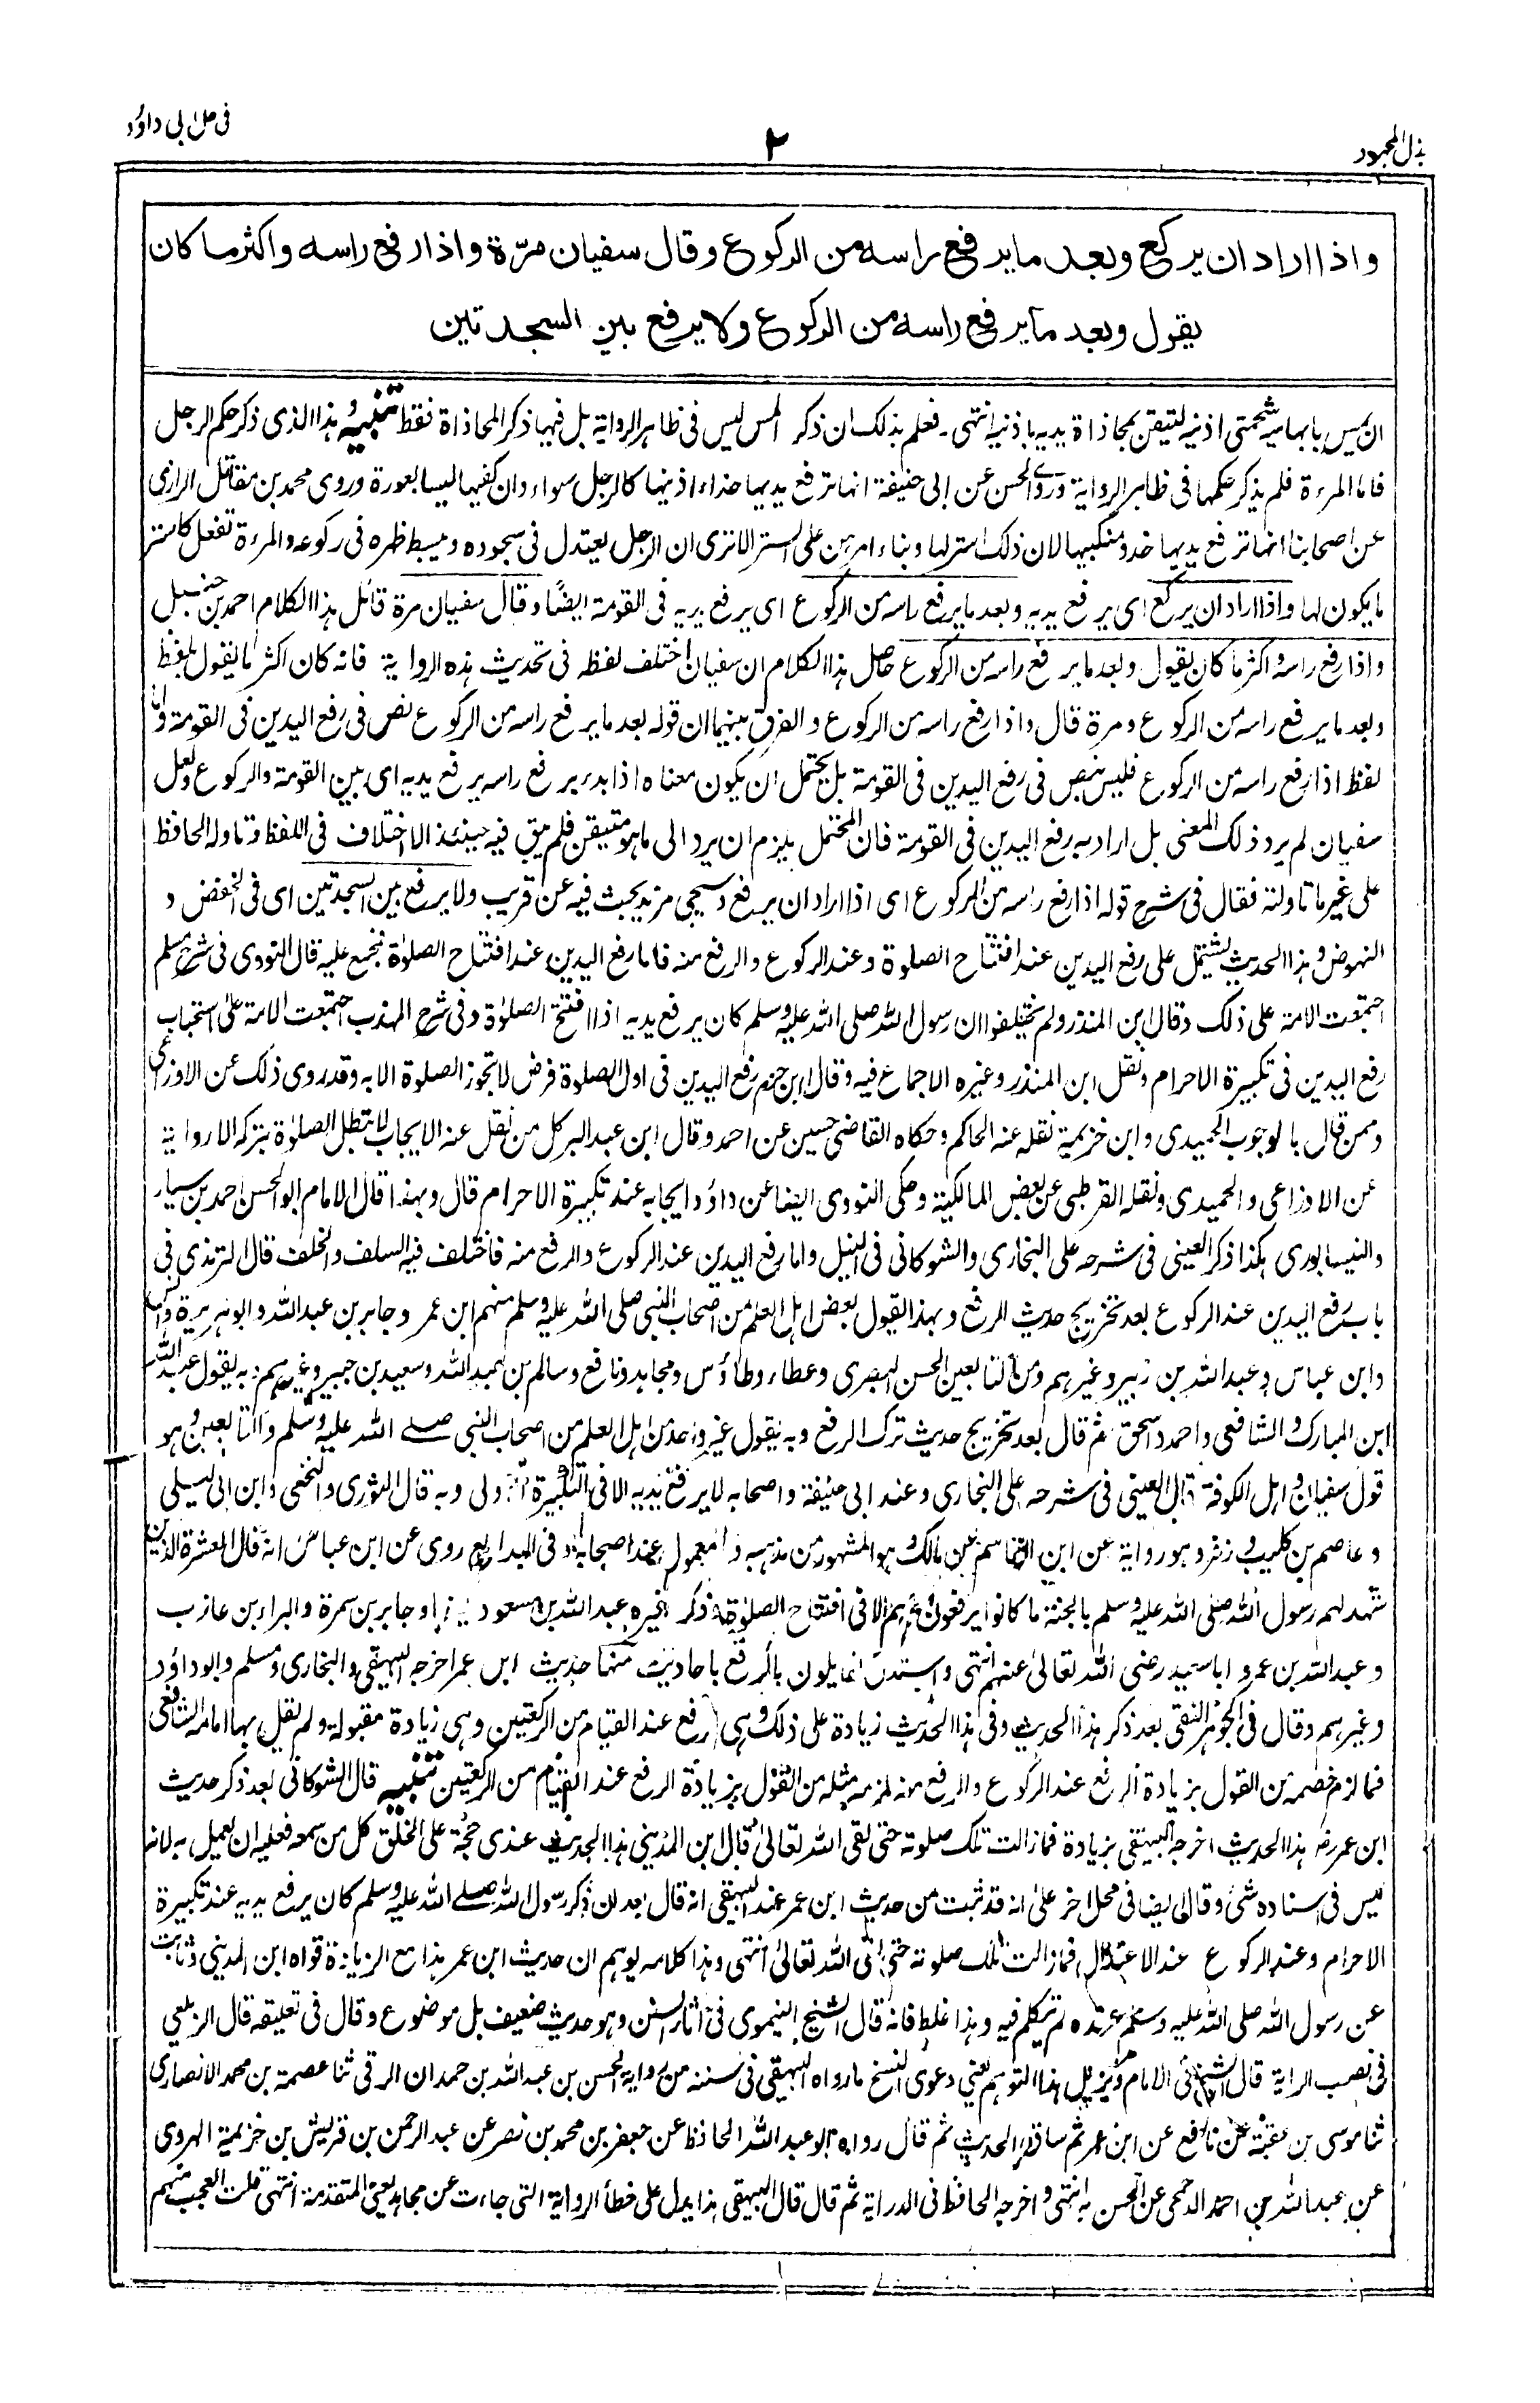 بذل المجهود
٢
فى حل ابى داؤد
واذا اراد ان يركع وبعد ما يرفع راسه من الركوع وقال سفيان مرّة واذا رفع راسه واكثر ما كان
يقول وبعد ما يرفع راسه من الركوع ولا يرفع بين السجدتين
ان يمس بابهاميه شحمتى اذنيه لتيقن بمحاذاة يديه باذنيه انتهى ۔ فعلم بذلك ان ذكر المس ليس فى ظاهر الرواية بل فيها ذكر المحاذاة فقط تنبيه و هذا الذى ذكر حكم الرجل
فاما المرءة فلم يذكر حكمها فى ظاهر الرواية وروى الحسن عن ابى حنيفة انها ترفع يديها حذاء اذنيها كالرجل سواء وان كفيها ليسا بعورة وروى محمد بن مقاتل الرازى
عن اصحابنا انها ترفع يديها حذو منكبيها لان ذلك استر لها وبناء امرهن على الستر الا ترى ان الرجل يعتدل فى سجوده ويبسط ظهره فى ركوعه والمرءة تفعل كاستر
ما يكون لها واذا اراد ان يركع اى يرفع يديه وبعد ما يرفع راسه من الركوع اى يرفع يديه فى القومة ايضًا وقال سفيان مرة قائل هذا الكلام احمد بن حنبل
واذا رفع راسه واكثر ما كان يقول وبعد ما يرفع راسه من الركوع حاصل هذا الكلام ان سفيان اختلف لفظه فى تحديث هذه الرواية فانه كان اكثر ما يقول بلفظ
وبعد ما يرفع راسه من الركوع ومرة قال واذا رفع راسه من الركوع والفرق بينهما ان قوله بعد ما يرفع راسه من الركوع نص فى رفع اليدين فى القومة واما
لفظ اذا رفع راسه من الركوع فليس بنص فى رفع اليدين فى القومة بل يحتمل ان يكون معناه اذا بدء برفع راسه يرفع يديه اى بين القومة والركوع ولعل
سفيان لم يرد ذلك المعنى بل اراد به رفع اليدين فى القومة فان المحتمل يلزم ان يرد الى ما هو متيقن فلم يبق فيه حينئذ الا اختلاف فى اللفظ وتاوله الحافظ
على غير ما تاولته فقال فى شرح قوله اذا رفع راسه من الركوع اى اذا اراد ان يرفع وسيجئ مزيد بحث فيه عن قريب ولا يرفع بين السجدتين اى فى الخفض و
النهوض وهذا الحديث يشتمل على رفع اليدين عند افتتاح الصلوة وعند الركوع والرفع منه فاما رفع اليدين عند افتتاح الصلوٰة فمجمع عليه قال النووى فى شرح مسلم
اجتمعت الامة على ذلك وقال ابن المنذر ولم يختلفوا ان رسول الله صلى الله عليه وسلم كان يرفع يديه اذا افتتح الصلوٰة وفى شرح المهذب اجتمعت الامة على استحباب
رفع اليدين فى تكبيرة الاحرام ونقل ابن المنذر وغيره الاجماع فيه وقال ابن حزم رفع اليدين فى اول الصلوة فرض لا تجوز الصلوة الا به وقد روى ذلك عن الاوزاعى
وممن قال بالوجوب الحميدى وابن خزيمة نقله عنه الحاكم وحكاه القاضى حسين عن احمد وقال ابن عبد البر كل من نقل عنه الايجاب لا تبطل الصلوٰة بتركه الا رواية
عن الاوزاعى والحميدى ونقله القرطبى عن بعض المالكية وحكى النووى ايضا عن داؤد ايجابه عند تكبيرة الاحرام قال وبهذا قال الامام ابو الحسن احمد بن سيار
والنيسابورى هكذا ذكر العينى فى شرحه على البخارى والشوكانى فى النيل واما رفع اليدين عند الركوع والرفع منه فاختلف فيه السلف والخلف قال الترمذى فى
باب رفع اليدين عند الركوع بعد تخريج حديث الرفع وبهذا القول بعض اهل العلم من اصحاب النبى صلى الله عليه وسلم منهم ابن عمر وجابر بن عبد الله وابو هريرة وانس
وابن عباس وعبد الله بن زبير وغيرهم ومن التابعين الحسن البصرى وعطاء وطاؤس ومجاهد ونافع وسالم بن عبد الله وسعيد بن جبير وغيرهم وبه يقول عبد الله
ابن المبارك والشافعى واحمد واسحق ثم قال بعد تخريج حديث ترك الرفع وبه يقول غير واحد من اهل العلم من اصحاب النبى صلے الله عليه وسلم والتابعين وهو
قول سفيان واهل الكوفة قال العينى فى شرحه على البخارى وعند ابى حنيفة واصحابه لا يرفع يديه الا فى التكبيرة الاولى وبه قال الثورى والنخعى وابن ابى ليلى
وعاصم بن كليب وزفر وهو رواية عن ابن القاسم عن مالك وهو المشهور من مذهبه والمعمول عند اصحابه وفى البدائع روى عن ابن عباس انه قال العشرة الذين
شهد لهم رسول الله صلى الله عليه وسلم بالجنة ما كانوا يرفعون ايديهم الا فى افتتاح الصلوٰة وذكر غيره عبد الله بن مسعود ايضا وجابر بن سمرة والبراء بن عازب
وعبد الله بن عمر وابا سعيد رضى الله تعالىٰ عنهم انتهى واستدل القايلون بالرفع باحاديث منها حديث ابن عمر اخرجه البيهقى والبخارى ومسلم وابو داؤد
وغيرهم وقال فى الجوهر النقى بعد ذكر هذا الحديث وفى هذا الحديث زيادة على ذلك وهى الرفع عند القيام من الركعتين وهى زيادة مقبولة ولم يقل بها امامه الشافعى
فما لزم خصمه من القول بزيادة الرفع عند الركوع والرفع منه لزمه مثله من القول بزيادة الرفع عند القيام من الركعتين تنبيه قال الشوكانى بعد ذكر حديث
ابن عمر رضـ هذا الحديث اخرجه البيهقى بزيادة فما زالت تلك صلوته حتى لقى الله تعالىٰ قال ابن المدينى هذا الحديث عندى حجة على الخلق كل من سمعه فعليه ان يعمل به لانه
ليس فى اسناده شئ وقال ايضا فى محل اخر علىٰ انه قد ثبت من حديث ابن عمر عند البيهقى انه قال بعد ان ذكر رسول الله صلے الله عليه وسلم كان يرفع يديه عند تكبيرة
الاحرام وعند الركوع عند الاعتدال فما زالت تلك صلوته حتى لقى الله تعالىٰ انتهى وهذا كلامه يوهم ان حديث ابن عمر هذا مع الزيادة قواه ابن المدينى وثابت
عن رسول الله صلى الله عليه وسلم عنده لم يتكلم فيه وهذا غلط فانه قال الشيخ النيموى فى اثار السنن وهو حديث ضعيف بل موضوع وقال فى تعليقه قال الزيلعى
فى نصب الراية قال الشيخ فى الامام ويزيل هذا التوهم يعنى دعوى النسخ ما رواه البيهقى فى سننه من رواية الحسن بن عبد الله بن حمدان الرقى ثنا عصمة بن محمد الانصارى
ثنا موسى بن عقبة عن نافع عن ابن عمر ثم ساق الحديث ثم قال رواه ابو عبد الله الحافظ عن جعفر بن محمد بن نصر عن عبد الرحمن بن قريش بن خزيمة الهروى
عن عبد الله بن احمد الدمجى عن الحسن به انتهى واخرجه الحافظ فى الدراية ثم قال قال البيهقى هذا يدل على خطأ الرواية التى جاءت عن مجاهد يعنى المتقدمة انتهى قلت العجب منهم